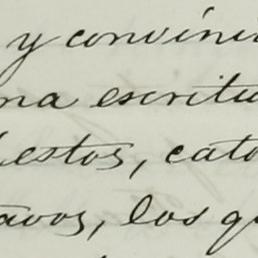 y convini
na escritu
estos, cato
avos, los qu